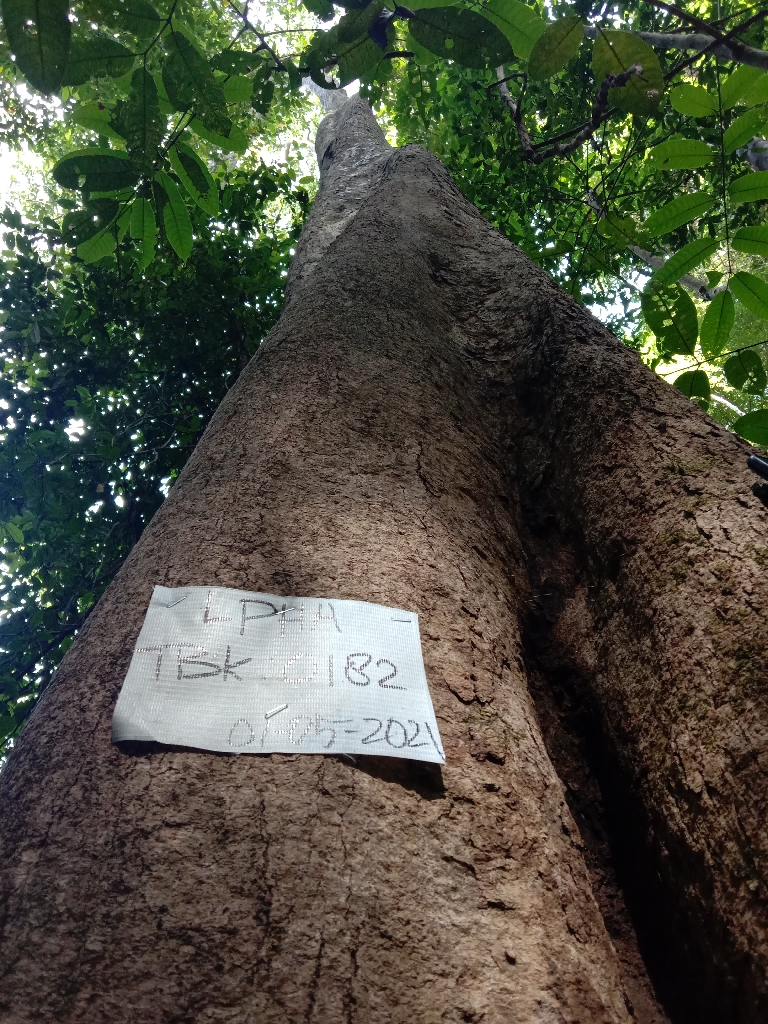 LPHH -
TBK 0182
01-05-2021